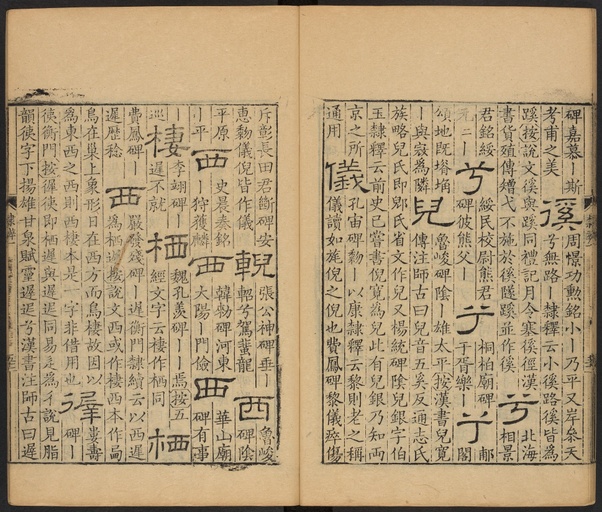 碑嘉慕｜斯
考甫之美
徯
周憬功勲銘小｜乃平又岸參天
兮無路　隸釋云小徯路徯皆為
蹊按説文徯與蹊同禮記月令塞徯徑漢
書貨殖傳矰弋不施於徯隧蹊並作徯
兮
北海
相景
君銘綏
元二｜
兮
綏民校尉熊君
碑彼熊父｜
兮
桐柏廟碑
于胥樂｜
兮
郙
閣
頌地既塉埆
｜與寇為隣
兒
魯峻碑陰｜雄太平按漢書兒寬
傳注師古曰兒音五奚反通志氏
族略兒氏即郳氏省文作兒又楊統碑陰兒銀字伯
玉隸釋云前史已嘗書倪寬為兒此有兒銀乃知兩
京之所｜
通用
儀
孔宙碑勑｜以康隸釋云黎則老之稱
儀讀如旄倪之倪也費鳳碑黎儀瘁傷
斥彰長田君斷碑安
惠勑儀倪皆作儀
輗
張公神碑乗｜
軺兮駕蜚龍
西
魯峻
碑陰
平原
｜平
西
史晨奏銘
｜狩獲麟
西
韓勑碑河東
大陽｜門儉
西
華山廟
碑有事
｜
巡
棲
李翊碑｜
遲不就
栖
魏孔羨碑｜｜焉按五
經文字云棲作栖同
栖
費鳳碑｜
遲歷稔
西
嚴發殘碑｜遲衡門隸續云以西遲
為栖遲按説文西或作棲西本作
鳥在巢上象形日在西方而鳥棲故因以
為東西之西則西棲本是一字非借用也
徲
婁壽
碑｜
徥衡門按徲徥即栖遲與遲同
韻徥字下揚雄甘泉賦靈遲遲兮漢書注師古曰遲